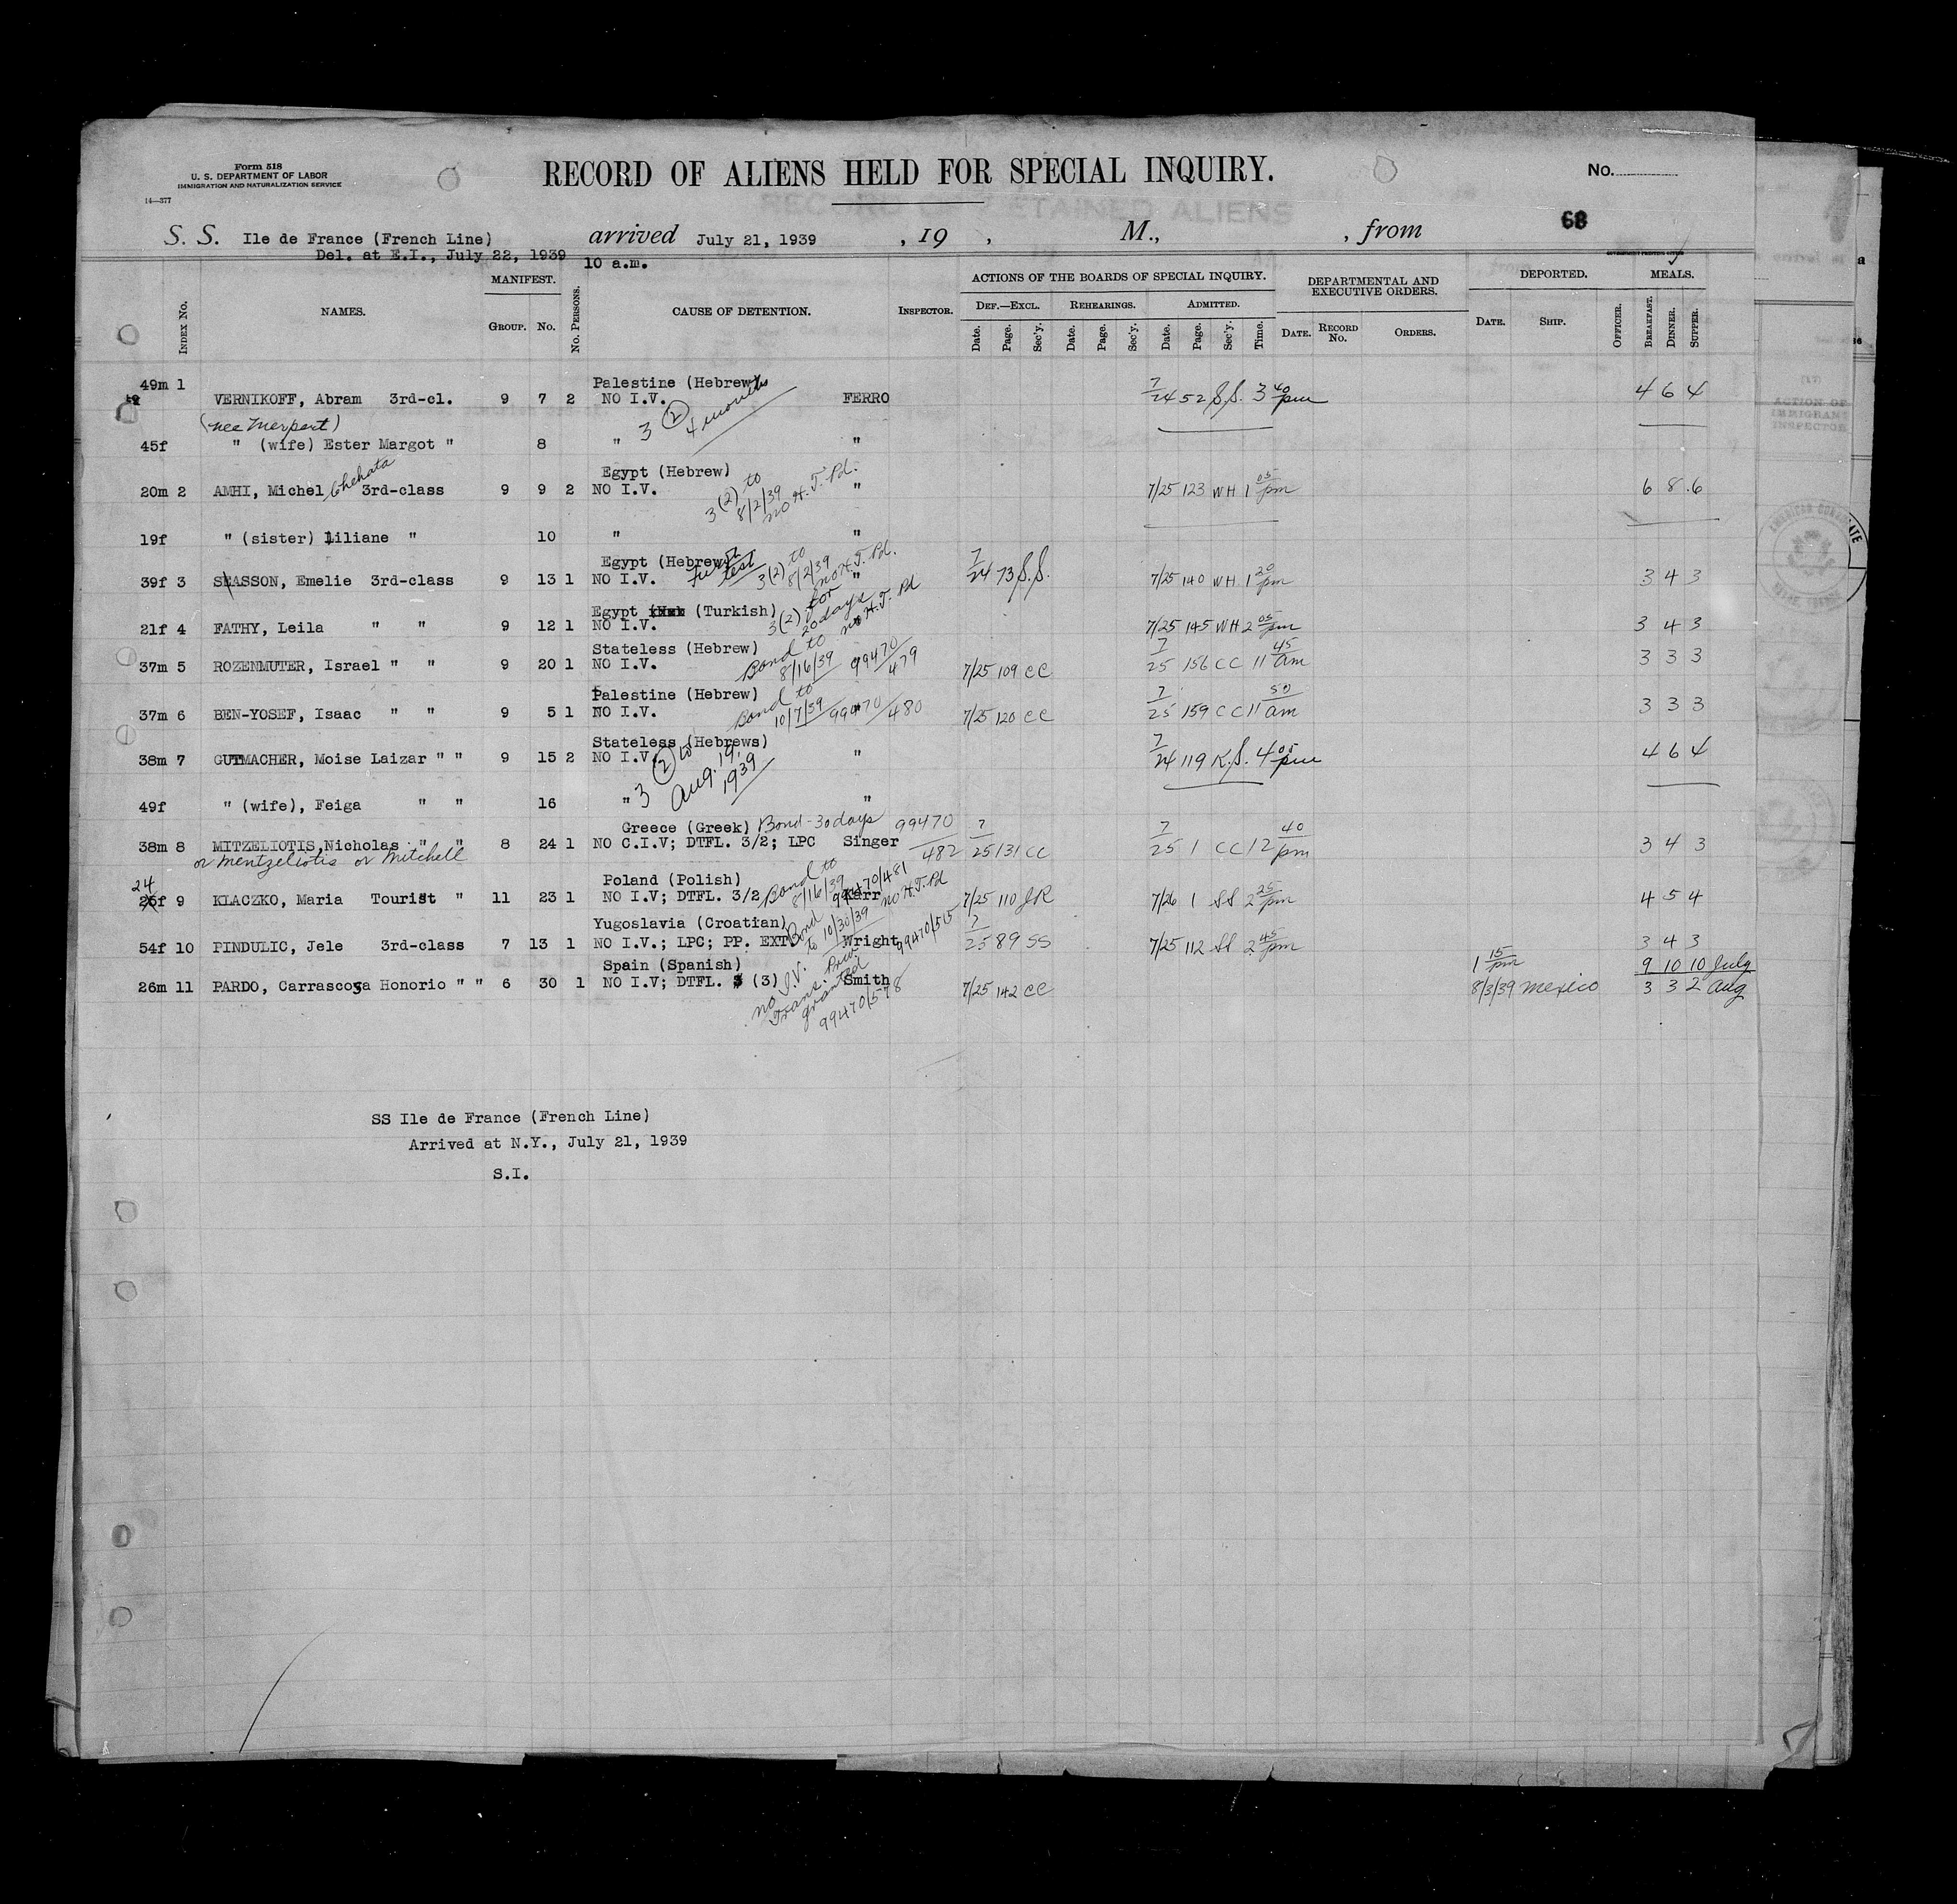 Form 518
U. S. DEPARTMENT OF LABOR
IMMIGRATION AND NATURALIZATION SERVICE
14—377
RECORD OF ALIENS HELD FOR SPECIAL INQUIRY.
No.
68
S. S. Ile de France (French Line) arrived July 21, 1939 , 19 , M., , from
Del. at E.I., July 22, 1939 10 a.m.
INDEX No. NAMES. MANIFEST. GROUP. No. No. PERSONS. CAUSE OF DETENTION. INSPECTOR. ACTIONS OF THE BOARDS OF SPECIAL INQUIRY. DEPARTMENTAL AND EXECUTIVE ORDERS. DEPORTED. MEALS.
DEF.—EXCL. REHEARINGS. ADMITTED.
Date. Page. Sec'y. Date. Page. Sec'y. Date. Page. Sec'y. Time. DATE. RECORD No. ORDERS. DATE. SHIP. OFFICER. BREAKFAST. DINNER. SUPPER.
49m 1 Palestine (Hebrew)
VERNIKOFF, Abram 3rd-cl. 9 7 2 NO I.V. 3 (2) 4 months FERRO 7/24 52 S.S. 3 40 pm 4 6 4
(nee Merpert)
45f " (wife) Ester Margot " 8 " "
Egypt (Hebrew)
20m 2 AMHI, Michel Chehata 3rd-class 9 9 2 NO I.V. 3(2) to 8/2/39 no H.T. Pd. " 7/25 123 WH 1 05 pm 6 8 6
19f " (sister) Liliane " 10 " "
Egypt (Hebrew)
39f 3 SEASSON, Emelie 3rd-class 9 13 1 NO I.V. 3(2) to 8/2/39 no H.T. Pd. " 7/24 73 S.S. 7/25 140 WH 1 20 pm 3 4 3
Egypt (Turkish)
21f 4 FATHY, Leila " " 9 12 1 NO I.V. 3(2) for 20 days no H.T. Pd 7/25 145 WH 2 05 pm 3 4 3
Stateless (Hebrew)
37m 5 ROZENMUTER, Israel " " 9 20 1 NO I.V. Bond to 8/16/39 99470/479 7/25 109 CC 7/25 156 CC 11 45 am 3 3 3
Palestine (Hebrew)
37m 6 BEN-YOSEF, Isaac " " 9 5 1 NO I.V. Bond to 10/7/39 99470/480 7/25 120 CC 7/25 159 CC 11 50 am 3 3 3
Stateless (Hebrews)
38m 7 GUTMACHER, Moise Laizar " " 9 15 2 NO I.V. 3 (2) to Aug. 19, 1939 " 7/24 119 K.S. 4 05 pm 4 6 4
49f " (wife), Feiga " " 16 " "
Greece (Greek) Bond - 30 days 99470/482
38m 8 MITZELIOTIS, Nicholas " " 8 24 1 NO C.I.V; DTFL. 3/2; LPC Singer 7/25 131 CC 7/25 1 CC 12 40 pm 3 4 3
or Mentzeliotis or Mitchell
Poland (Polish)
24 26f 9 KLACZKO, Maria Tourist " 11 23 1 NO I.V; DTFL. 3/2 Bond to 8/16/39 99470/481 no H.T. Pd Karr 7/25 110 JR 7/26 1 SS 2 25 pm 4 5 4
Yugoslavia (Croatian)
54f 10 PINDULIC, Jele 3rd-class 7 13 1 NO I.V.; LPC; PP. EXT. Bond to 10/30/39 Wright 99470/515 7/25 89 SS 7/25 112 SS 2 45 pm 3 4 3
Spain (Spanish) 1 15 pm 9 10 10 July
26m 11 PARDO, Carrascosa Honorio " " 6 30 1 NO I.V; DTFL. (3) no I.V. Trans. Priv. granted 99470/578 Smith 7/25 142 CC 8/3/39 Mexico 3 3 2 Aug
SS Ile de France (French Line)
Arrived at N.Y., July 21, 1939
S.I.